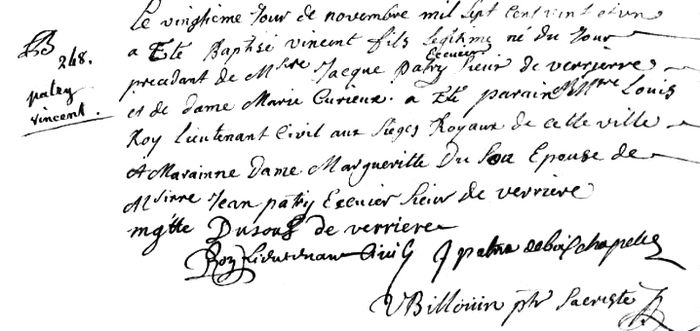 Le vingtieme Jour de novembre mil Sept Cent vint et un
B
248.
patry
vincent.
a Eté Baptisé vincent fils Legitime né du Jour
precedant de Msire Jacque patry Ecuier Sieur de verrierre
et de dame Marie Curieux. a Eté parain Mtre Louis
Roy Lieutenant Civil aux Sieges Royaux de cette ville
et Marainne Dame Margueritte Du Sou Epouse de
Msirre Jean patry Eccuier Sieur de verriere
mgtte Dusous de verriere
Roy Lieutenant Civil J patri de bois chapelle
VBillouin ptr Sacriste